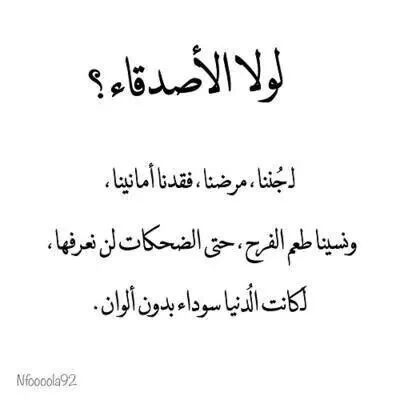 لولا الأصدقاء؟
لجُننا، مرضنا، فقدنا أمانينا،
ونسينا طعم الفرح، حتى الضحكات لن نعرفها،
لَكانت الُدنيا سوداء بدون ألوان.
Nfoooola92